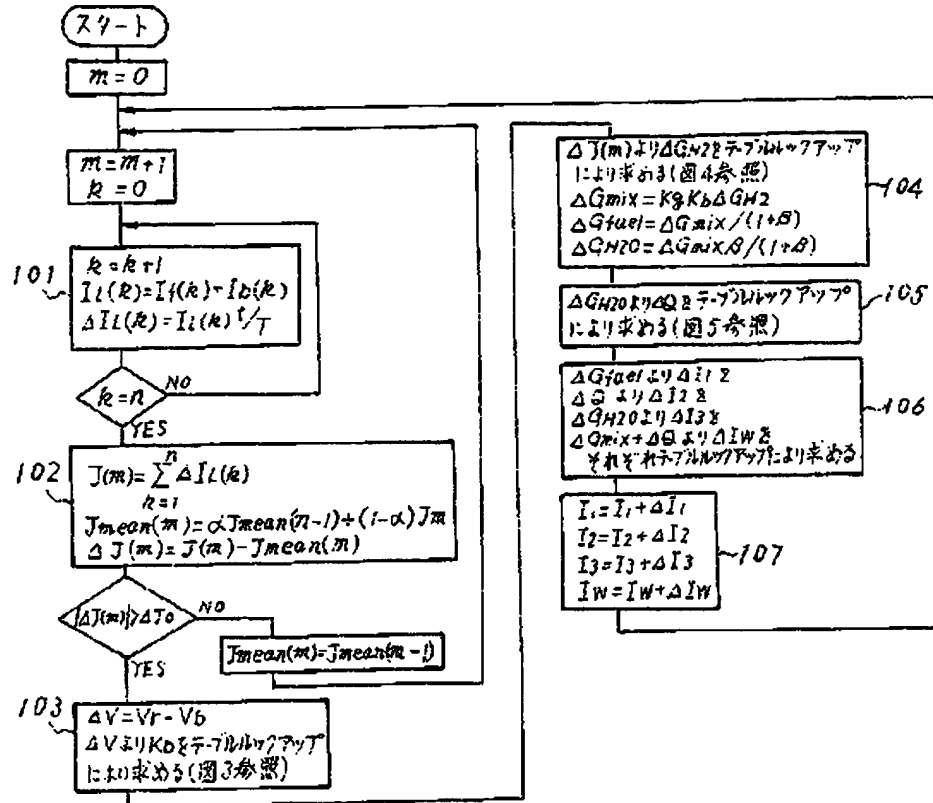 スタート
m=0
m=m+1
k=0
101
k=k+1
IL(k)=If(k)-Ib(k)
ΔIL(k)=IL(k) t/T
k=n
NO
YES
102
J(m)=Σ ΔIL(k)
n
k=1
Jmean(m)=αJmean(n-1)+(1-α)Jm
ΔJ(m)=J(m)-Jmean(m)
|ΔJ(m)|>ΔJ0
NO
YES
Jmean(m)=Jmean(m-1)
103
ΔV=Vr-Vb
ΔVよりKbをテーブルルックアップ
により求める(図3参照)
ΔJ(m)よりΔGH2をテーブルルックアップ
により求める(図4参照)
ΔGmix=KgKbΔGH2
ΔGfuel=ΔGmix/(1+β)
ΔGH2O=ΔGmixβ/(1+β)
104
ΔGH2OよりΔQをテーブルルックアップ
により求める(図5参照)
105
ΔGfuelよりΔI1を
ΔQよりΔI2を
ΔGH2OよりΔI3を
ΔGmix+ΔQよりΔIWを
それぞれテーブルルックアップにより求める
106
I1=I1+ΔI1
I2=I2+ΔI2
I3=I3+ΔI3
IW=IW+ΔIW
107